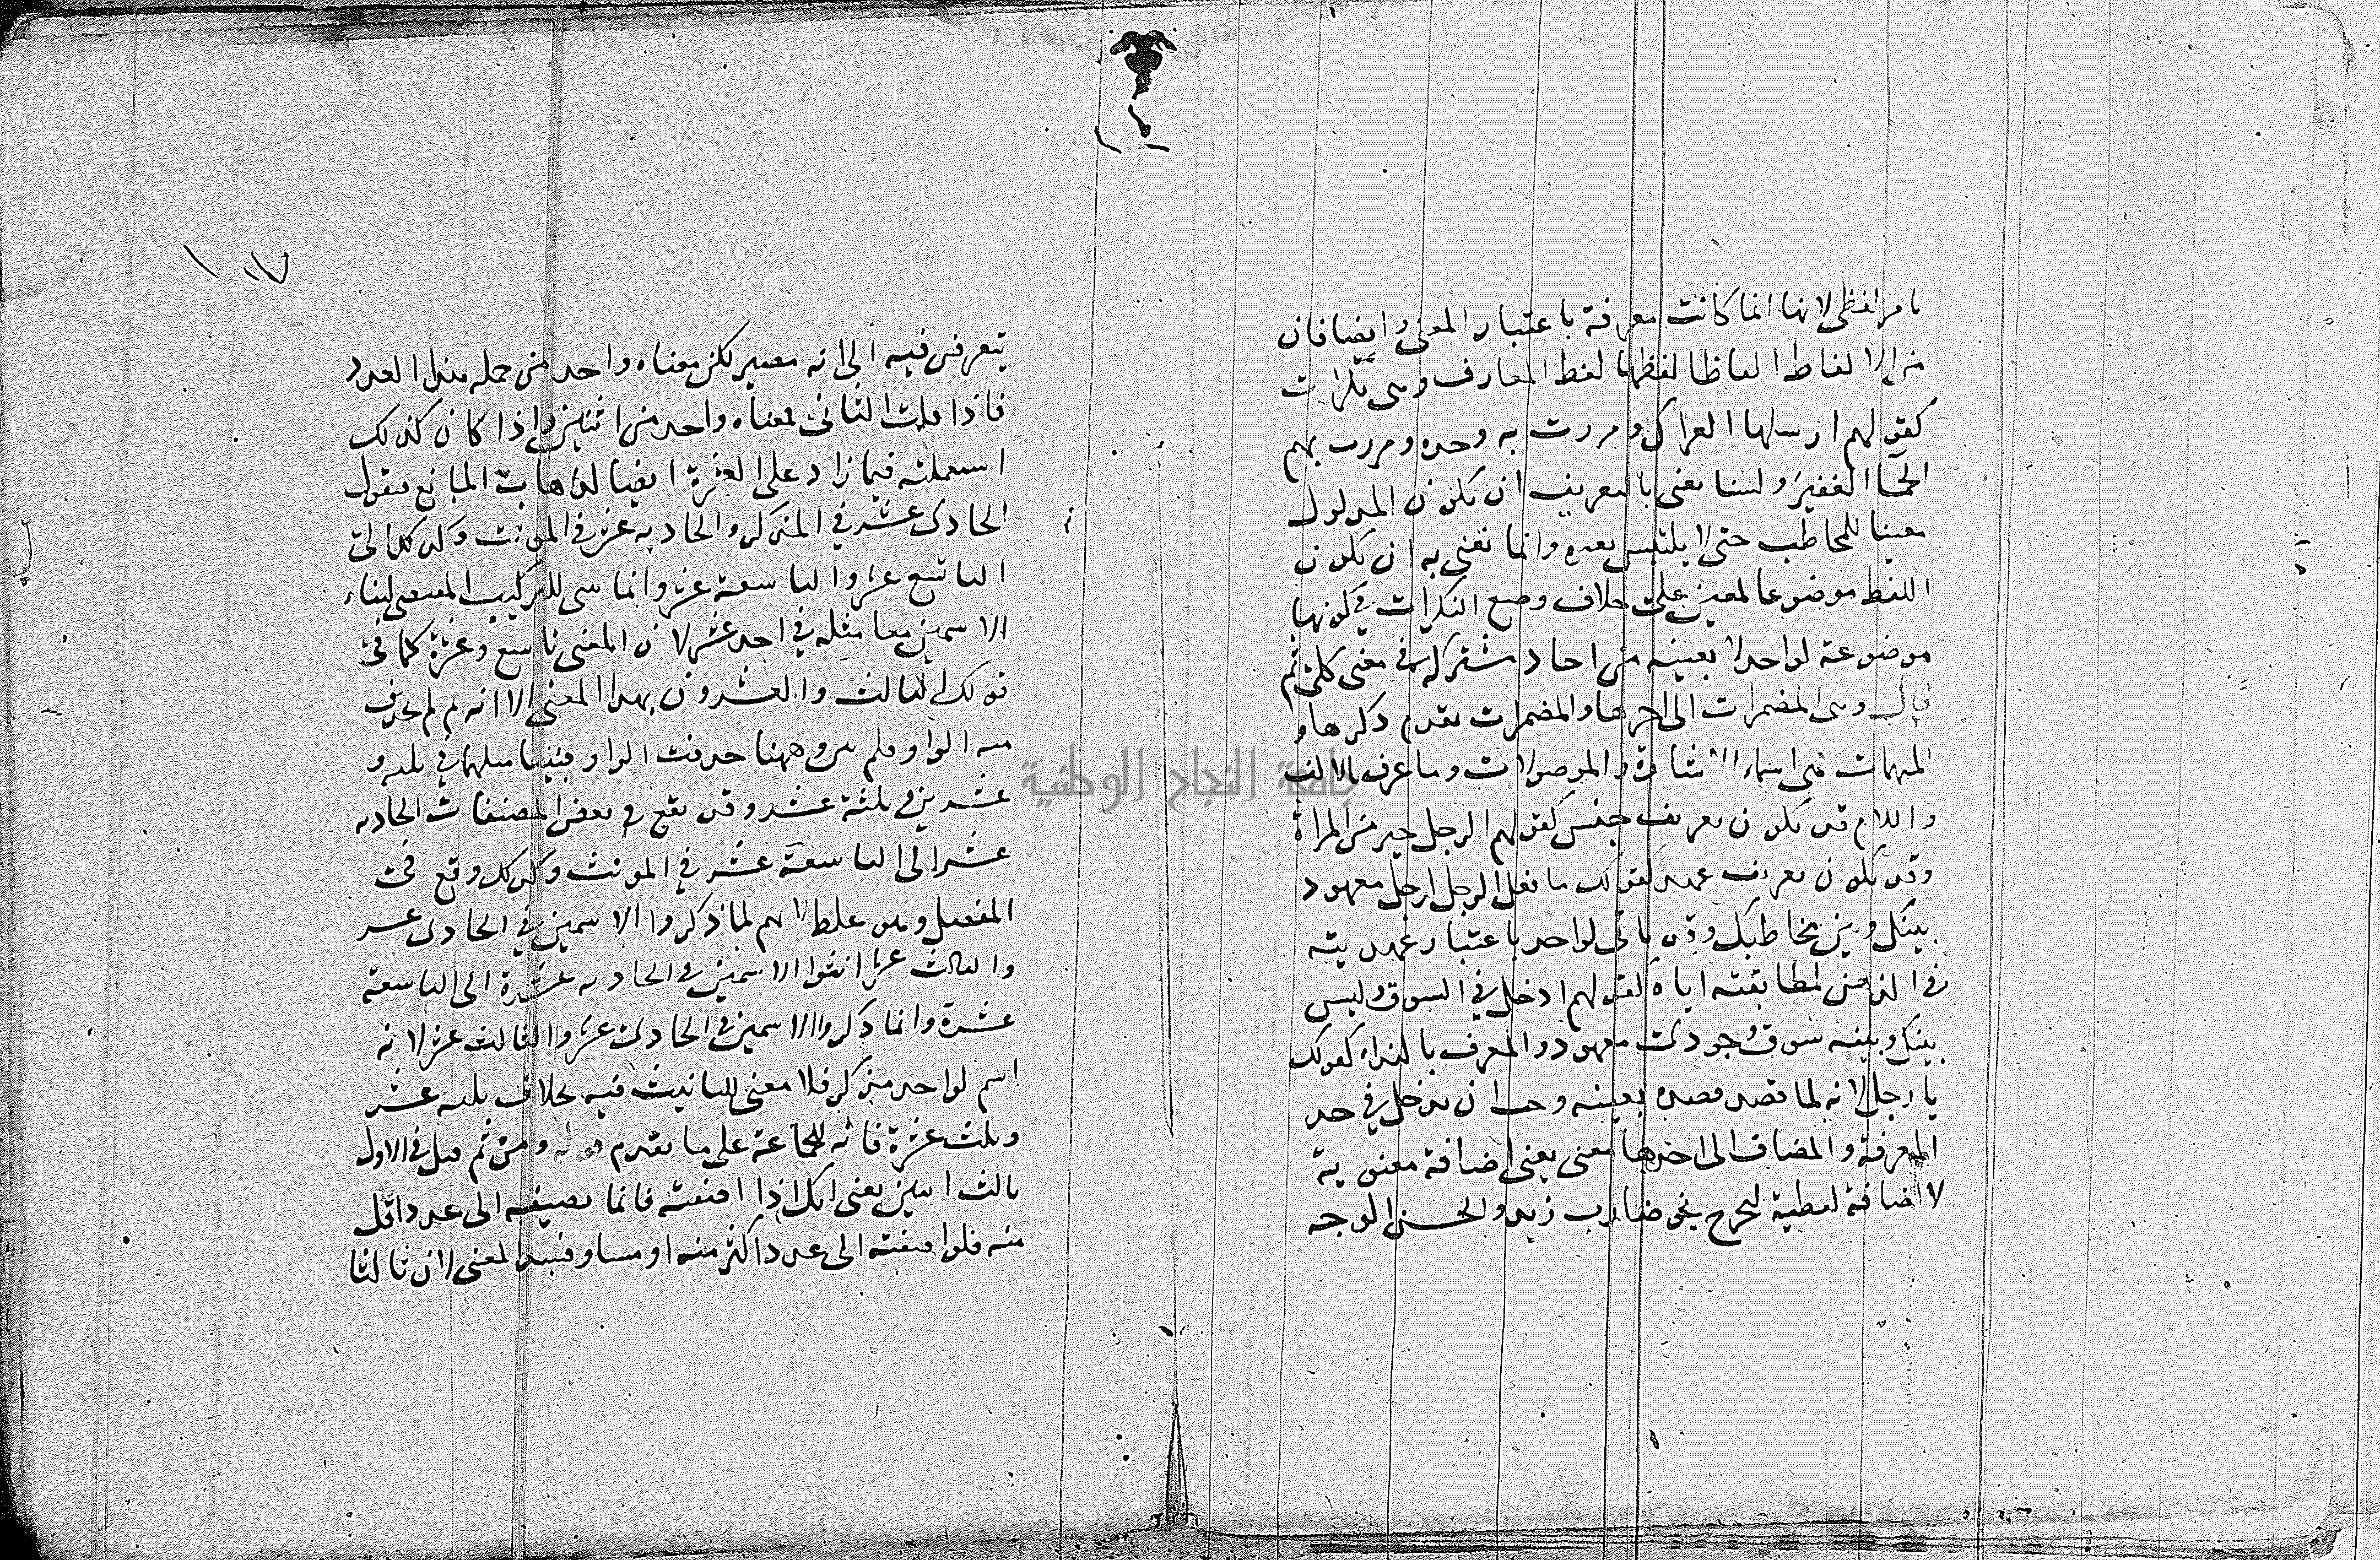 بامر لفظي لانها انما كانت معرفة باعتبار المعنى وايضا فان
من الالفاظ الفاظا لفظها لفظ المعارف وهي نكرات
كقولهم ارسلها العراك ومررت به وحده ومررت بهم
الجما الغفير ولسنا نعني بالتعريف ان يكون المدلول
معينا للمخاطب حتى لا يلتبس بغيره وانما نعني به ان يكون
اللفظ موضوعا لمعين على خلاف وضع النكرات في كونها
موضوعة لواحد لا بعينه من احاد مشتركة في معنى كلي ثم
قال وهي المضمرات الى اخرها والمضمرات تقدم ذكرها و
المبهمات هي اسماء الاشارة والموصولات وما عرف بالالف
واللام قد يكون تعريف جنس كقولهم الرجل خير من المراة
وقد يكون تعريف عهد كقولك ما فعل الرجل لرجل معهود
بينك وبين مخاطبك وقد ياتي لواحد باعتبار عهديته
في الذهن لمطابقته اياه كقولهم ادخل في السوق وليس
بينك وبينه سوق وجودي معهود والمعرف بالنداء كقولك
يا رجل لانه لما قصد قصده بعينه وجب ان يدخل في حد
المعرفة والمضاف الى احدها معنى يعني اضافة معنوية
لا اضافة لفظية ليخرج نحو ضارب زيد والحسن الوجه
١١٧
يتعرض فيه الى انه مصير لكن معناه واحد من جملة هذا العدد
فاذا قلت الثاني فمعناه واحد من اثنين واذا كان كذلك
استعملته فيما زاد على العشرة ايضا لذهاب المانع فتقول
الحادي عشر في المذكر والحادية عشرة في المونث وكذلك الى
التاسع عشر والتاسعة عشرة وانما بني للتركيب المقتضي لبناء
الاسمين معا مثله في احد عشر لان المعنى تاسع وعشرة كما في
قولك الثالث والعشرون بهذا المعنى الا انه ثم لم يحذف
منه الواو فلم يبن وههنا حذفت الواو فبنيا مثلهما في ثلثة و
عشر في ثلثة عشر وقد يقع في بعض المصنفات الحادية
عشر الى التاسعة عشر في المونث وكذلك وقع في
المفصل وهو غلط لانهم لما ذكروا الاسمين في الحادي عشر
والثالث عشر انثوا الاسمين في الحادية عشرة الى التاسعة
عشرة وانما ذكروا الاسمين في الحادي عشر والثالث عشر لانه
اسم لواحد مذكر فلا معنى للتانيث فيه بخلاف ثلثة عشر
وثلث عشرة فانه للجماعة على ما تقدم ومن ثم قيل في الاول
ثالث اثنين يعني انك اذا اضفته فانما تضيفه الى عدد اقل
منه فلو اضفته الى عدد اكثر منه او مساو فسد المعنى لان ثالثا
جامعة النجاح الوطنية